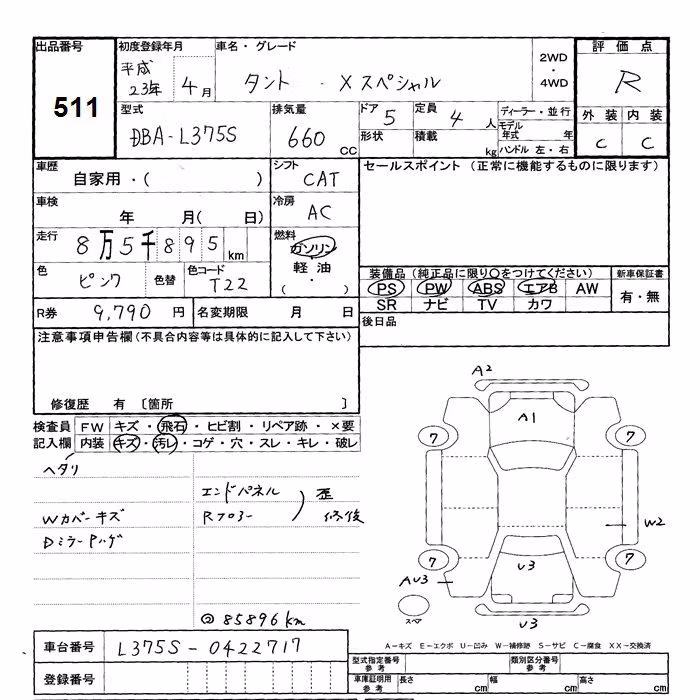 出品番号 初度登録年月 車名・グレード 2WD・4WD 評価点
511 平成23年 4月 タント・Xスペシャル R
型式 排気量 ドア 定員 ディーラー・並行 外装 内装
DBA-L375S 660cc 5 4人 モデル年式 年 C C
形状 積載 kg ハンドル 左・右
車歴 シフト セールスポイント (正常に機能するものに限ります)
自家用・( ) CAT
車検 冷房
年 月( 日) AC
走行 燃料
8万5千895km ガソリン
軽油
( ・ )
色 色替 色コード 装備品(純正品に限り○をつけてください) 新車保証書
ピンク T22 PS PW ABS エアB AW 有・無
SR ナビ TV カワ
R券 9,790円 名変期限 月 日 後日品
注意事項申告欄(不具合内容等は具体的に記入して下さい)
修復歴 有 〔箇所 〕
検査員 FW キズ・飛石・ヒビ割・リペア跡・×要
記入欄 内装 キズ・汚レ・コゲ・穴・スレ・キレ・破レ
ヘタリ
エンドパネル
Rフロアー
歪
修後
Wカバーキズ
DミラーPハゲ
@85896km
A2
A1
7 7
W2
7 7
U3
AU3
スペア
U3
A-キズ E-エクボ U-凹み W-補修跡 S-サビ C-腐食 XX-交換済
車台番号 L375S-0422717
登録番号
型式指定番号 参考 類別区分番号 参考
車庫証明用 参考 長さ cm 幅 cm 高さ cm